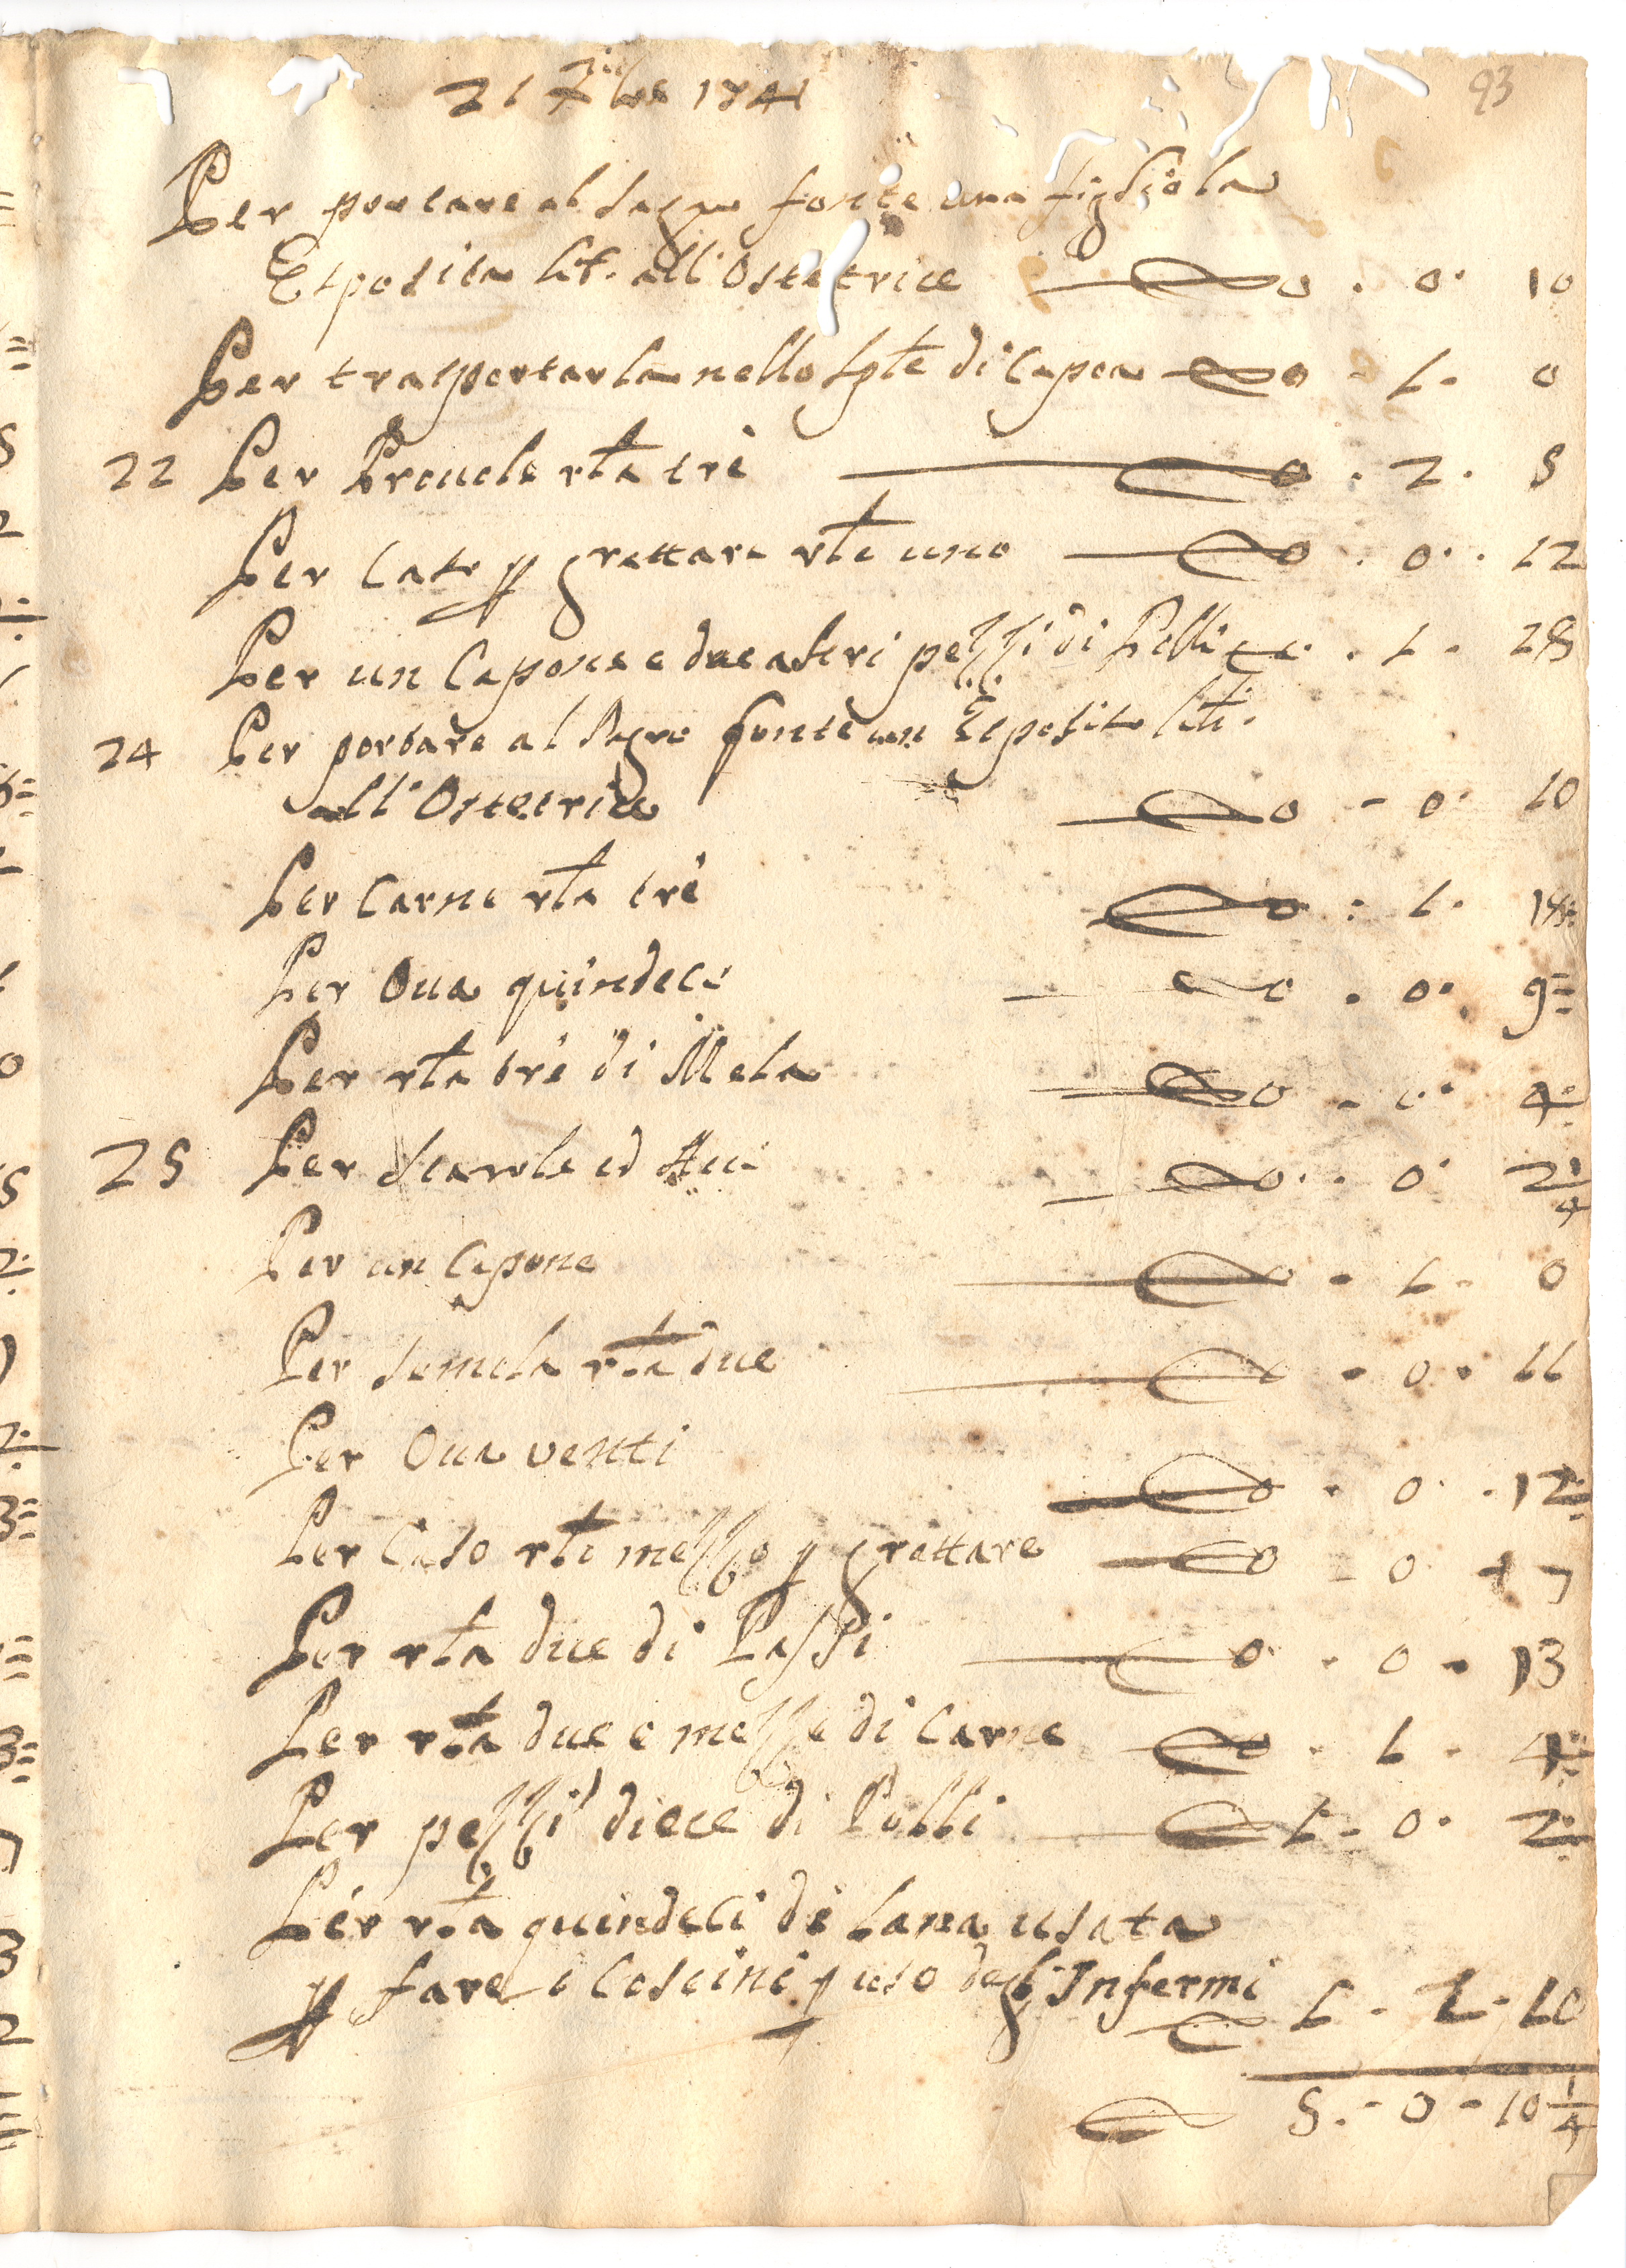 93
21 7bre 1741
Per portare al Sagro fonte una figliola
Esposita all'Ostetrice 0 . 0 . 10
Per trasportarla nello di Capoa 0 - 1 . 0
22 Per Prouole rla tre 0 . 2 . 5
Per Caso p grattare rlo uno 0 . 0 . 12
Per un Capone e due altri pezzi di Polli 0 . 1 . 28
24 Per portare al Sagro fonte un Esposito
all'Ostetrice 0 - 0 . 10
Per Carne rla tre 0 : 1 .
Per Oua quindeci 0 . 0 . 9=
Per rla tre di Mela 0 - 0 . 4
25 Per Scarole ed 0 . 0 . 2 1/4
Per un Capone 0 - 1 - 0
Per Semola rla due 0 - 0 . 11
Per Oua venti 0 . 0 . 12
Per Caso rlo mezzo p grattare 0 - 0 7
Per rla due di Passi 0 . 0 . 13
Per rla due e mezze di Carne 0 . 1 . 4
Per pezzi diece di Polli 1 - 0 . 2
Per rla quindeci di lana usata
p fare i Coscini p uso degl'Infermi 1 - 1 - 10
5 . - 0 - 10 1/4